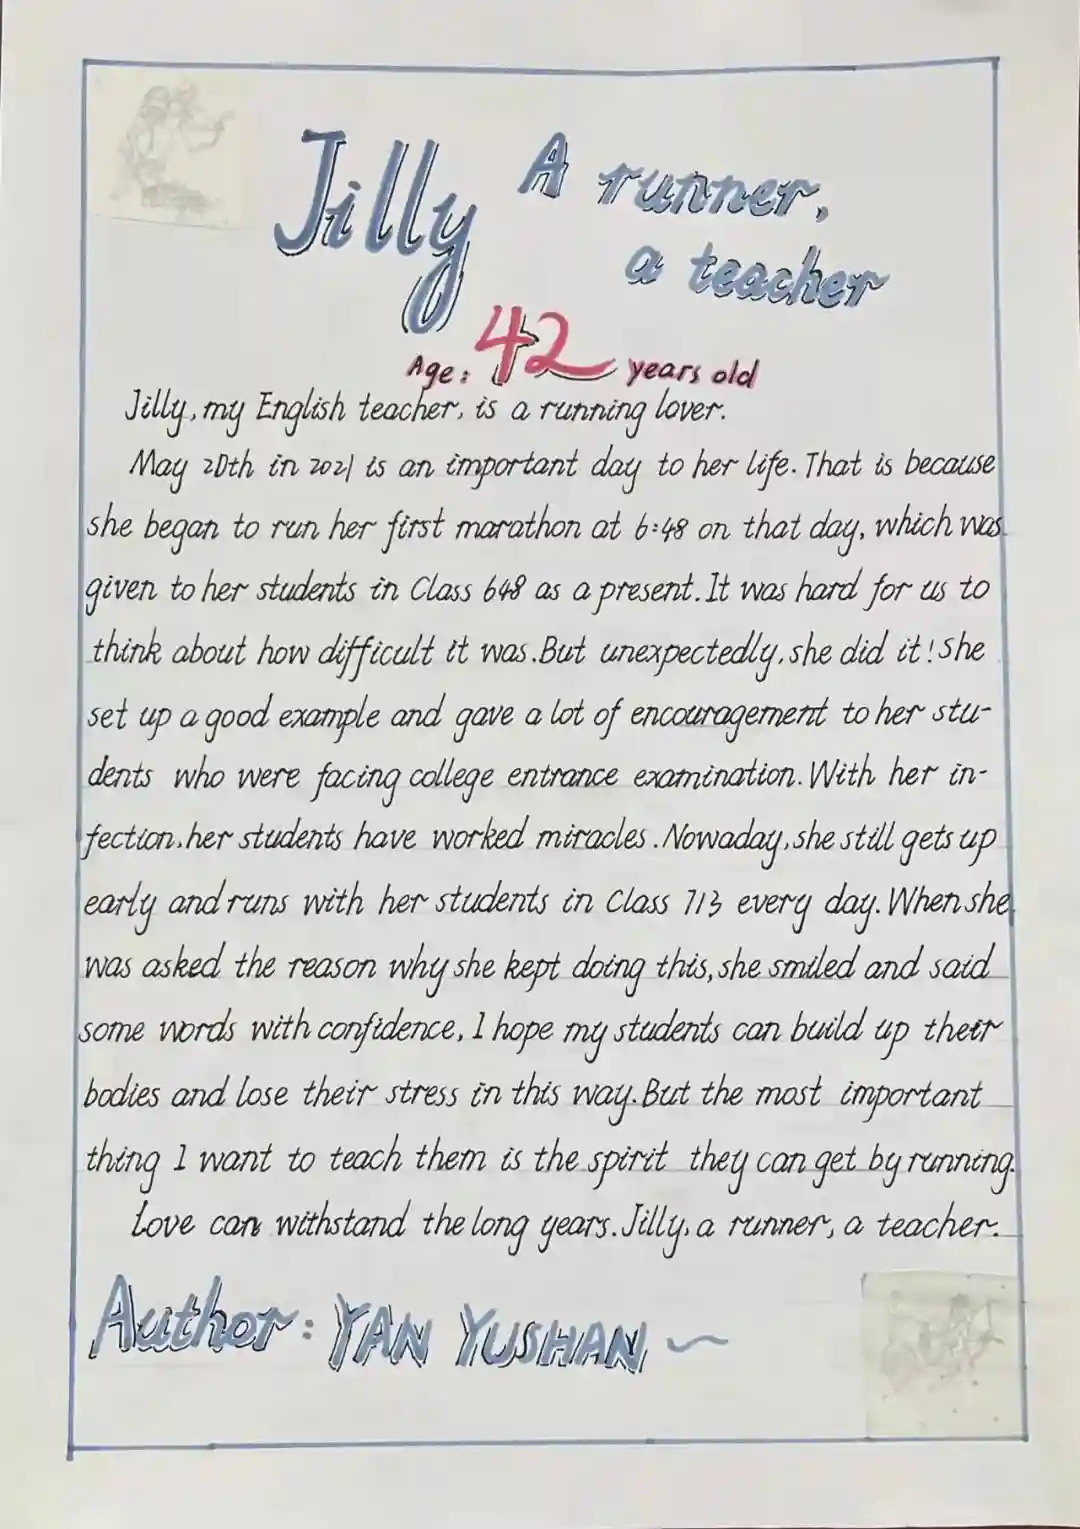 Jilly A runner,
a teacher
Age: 42 years old
Jilly, my English teacher, is a running lover.
May 20th in 2021 is an important day to her life. That is because
she began to run her first marathon at 6:48 on that day, which was
given to her students in Class 648 as a present. It was hard for us to
think about how difficult it was. But unexpectedly, she did it! She
set up a good example and gave a lot of encouragement to her stu-
dents who were facing college entrance examination. With her in-
fection, her students have worked miracles. Nowaday, she still gets up
early and runs with her students in Class 713 every day. When she
was asked the reason why she kept doing this, she smiled and said
some words with confidence, I hope my students can build up their
bodies and lose their stress in this way. But the most important
thing I want to teach them is the spirit they can get by running.
Love can withstand the long years. Jilly, a runner, a teacher.
Author: YAN YUSHAN~